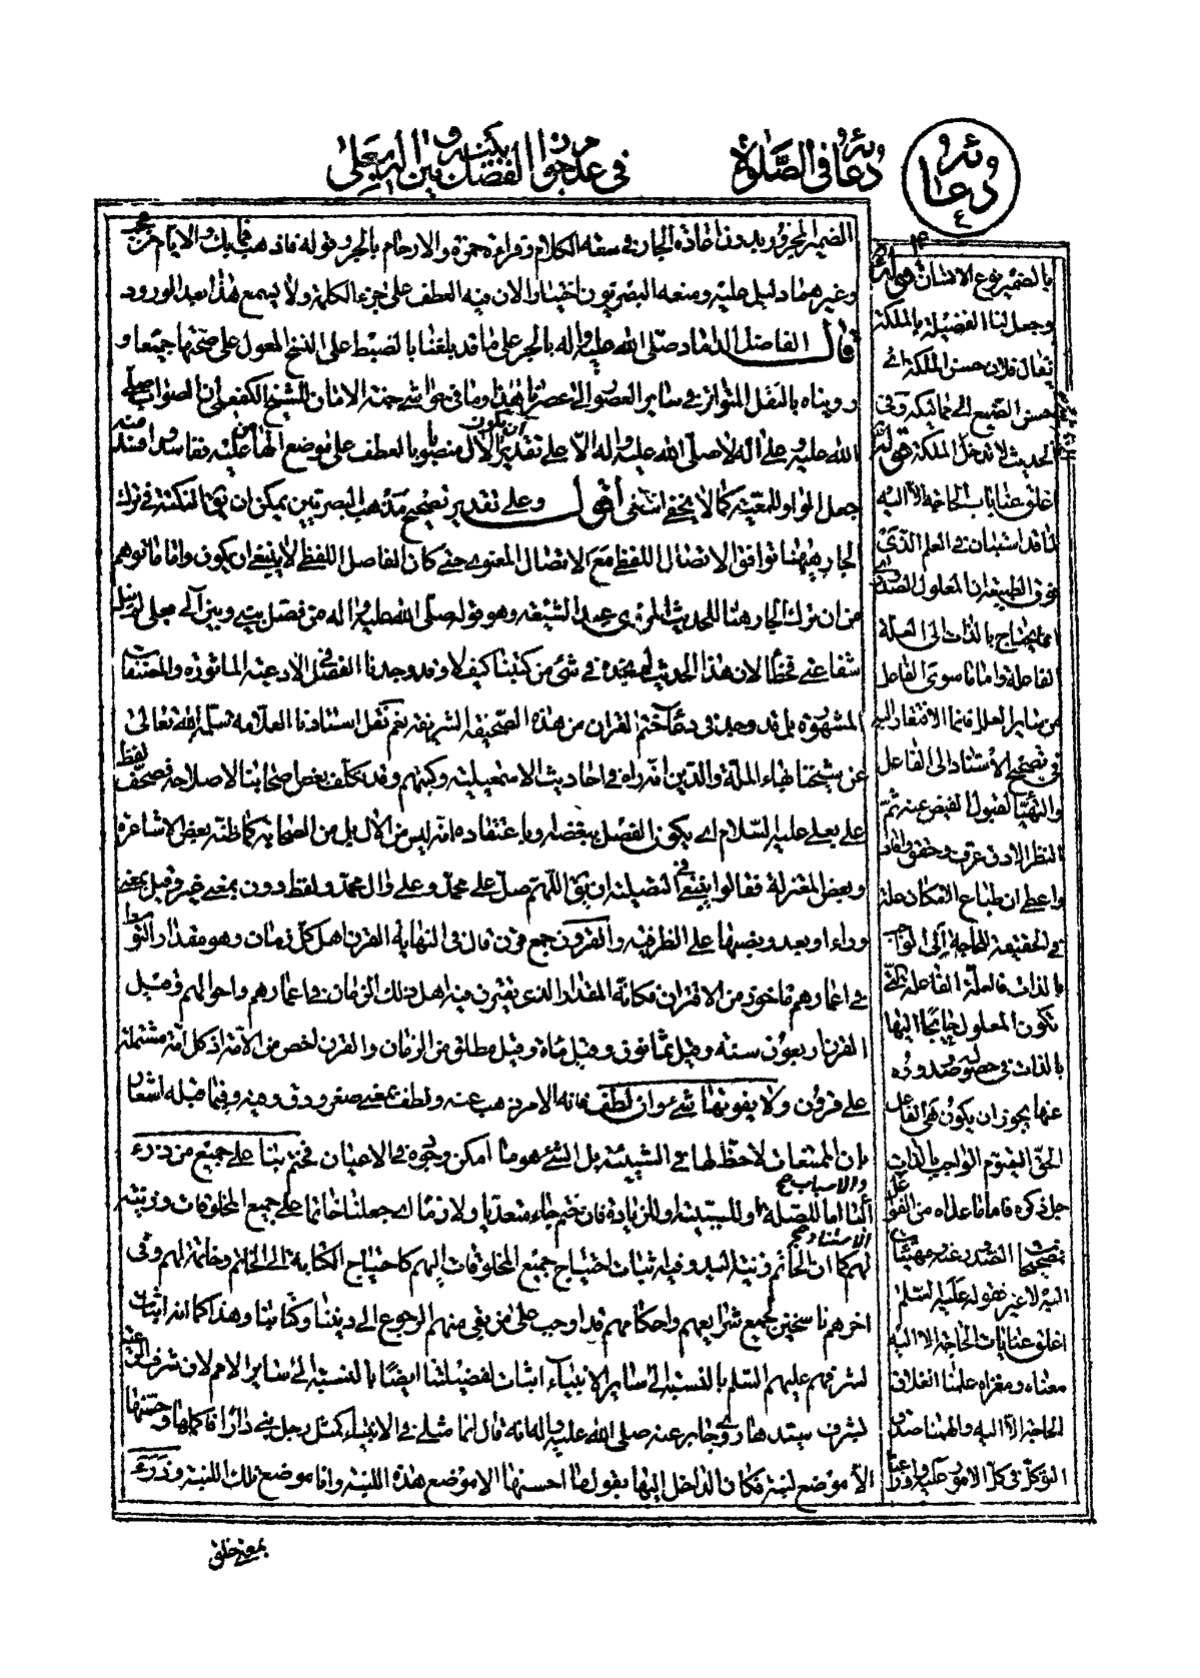 دعائه
٤
دعائه في الصلوة
في عدم جواز الفصل بينه وبين اله بعلى
الضمير المجرور بدون اعادة الجار في سعة الكلام وقراءة حمزة والارحام بالجر وقوله فاذهب فما بك والايام من عجب
وغيرهما دليل عليه ومنعه البصريون اختيارا لان فيه العطف على جزء الكلمة ولا يسمع هذا بعد الورود
قال الفاضل الداماد صلى الله عليه واله بالجر على ما قد بلغنا بالضبط على النسخ المعول على صحتها جميعا و
رويناه بالنقل المتواتر في ساير العصور الى عصرنا هذا وما في حواشي جنة الامان للشيخ الكفعمي ان الصواب صلى
الله عليه وعلى اله لا صلى الله عليه واله الا على تقدير ان يكون الال منصوبا بالعطف على موضع الهاء من عليه فقاسد
جعل الواو للمعية كما لا يخفى انتهى اقول وعلى تقدير تصحيح مذهب البصريين يمكن ان يق النكتة في ترك
الجار ههنا توافق الاتصال اللفظي مع الاتصال المعنوي حتى كان الفاصل اللفظي لا ينبغي ان يكون واما ما توهم
من ان ترك الجار هنا للحديث المروي عند الشيعة وهو قوله صلى الله عليه واله من فصل بيني وبين آلي بعلى لم ينل
شفاعتي فخطأ لان هذا الحديث لم نجده في شئ من كتبنا كيف لا وقد وجدنا الفصل في الادعية الماثورة والمصنفات
المشهورة بل قد وجد في دعاء ختم القران من هذه الصحيفة الشريفة نعم نقل استادنا العلامة سلمه الله تعالى
عن شيخنا بهاء الملة والدين انه راه في احاديث الاسمعيلية وكتبهم وقد تكلف بعض اصحابنا لاصلاحه فصحف لفظ
على بعلي عليه السلام اي يكون الفصل ببغضه وباعتقاده انه ليس من الال بل من الصحابة كما ظنه بعض الاشاعرة
وبعض المعتزلة فقالوا ينبغي في تفضيله ان يق اللهم صل على محمد وعلي وال محمد ولفظ دون بمعنى غير وقيل بمعنى
وراء او بعد ونصبها على الظرفية والقرون جمع قرن قال في النهاية القرن اهل كل زمان وهو مقدار التوسط
في اعمارهم ماخوذ من الاقتران فكانه المقدار الذي يقترن فيه اهل ذلك الزمان في اعمارهم واحوالهم وقيل
القرن اربعون سنة وقيل ثمانون وقيل مائة وقيل مطلق من الزمان والقرن اخص من الامة اذ كل امة مشتملة
على قرون ولا يفوتها شئ وان لطف فانه الامر ذهب عنه ولطف بمعنى صغر ودق وفيه وفيما قبله اشعار
بان الممتنعات لا حظ لها في الشيئية بل الشئ هو ما امكن وجوده في الاعيان فختم بنا على جميع من ذرء
والاسباب صح
الباء اما للصلة او للسببية او للزيادة فان ختم جاء متعديا ولازما اي جعلنا خاتما على جميع المخلوقات وزينته
الاستناد صح
لهم كما ان الخاتم زينة لليد وفيه اثبات احتياج جميع المخلوقات اليهم كاحتياج الكتابة الى الخاتم وخاتمة لهم وفي
اخرهم ناسخين لجميع شرايعهم واحكامهم قد اوجب على من بقي منهم الرجوع الى ديننا وكتابنا وهذا كما انه اثبات
لشرفهم عليهم السلم بالنسبة الى ساير الانبياء اثبات لفضيلتنا ايضا بالنسبة الى ساير الامم لان شرف
لشرف سيدها روى جابر عنه صلى الله عليه واله انه قال انما مثلي في الانبياء كمثل رجل بنى دارا فاكملها وحسنها
الا موضع لبنة فكان الداخل اليها يقول ما احسنها الا موضع هذه اللبنة وانا موضع تلك اللبنة وذرء
بمعنى خلق
بالضمير نوع الانسان
وجعل لنا الفضيلة بالملكة
يقال فلان حسن الملكة اي
حسن الصنيع الى مماليكه وفي
الحديث لا يدخل الملكة
اغلق عنا باب الحاجة الا اليه
لما قد استبان في العلم الذي
فوق الطبيعة ان المعلول
انما يحتاج بالذات الى العلة
الفاعلة واما ما سوى الفاعل
من ساير العلل فانما الافتقار اليه
في تصحيح الاستناد الى الفاعل
والتهيأ لقبول الفيض عنه ثم
النظر الادق عرف وحقق وافاد
واعطى ان طباع الامكان علة
في الحقيقة للحاجة الى الواجب
بالذات فالعلة الفاعلة التي
يكون المعلول محتاجا اليها
بالذات في حصوله وصدوره
عنها يجوز ان يكون هي الفاعل
الحق القيوم الواجب بالذات
جل ذكره فاما ما عداه من
تصحيحا الصدور عنه مهيئات
اليه لا غير فقوله عليه السلم
اغلق عنا باب الحاجة الا اليه
معناه ومغزاه علمنا انغلاق
الحاجة الا اليه والهمنا صدق
التوكل في كل الامور عليه